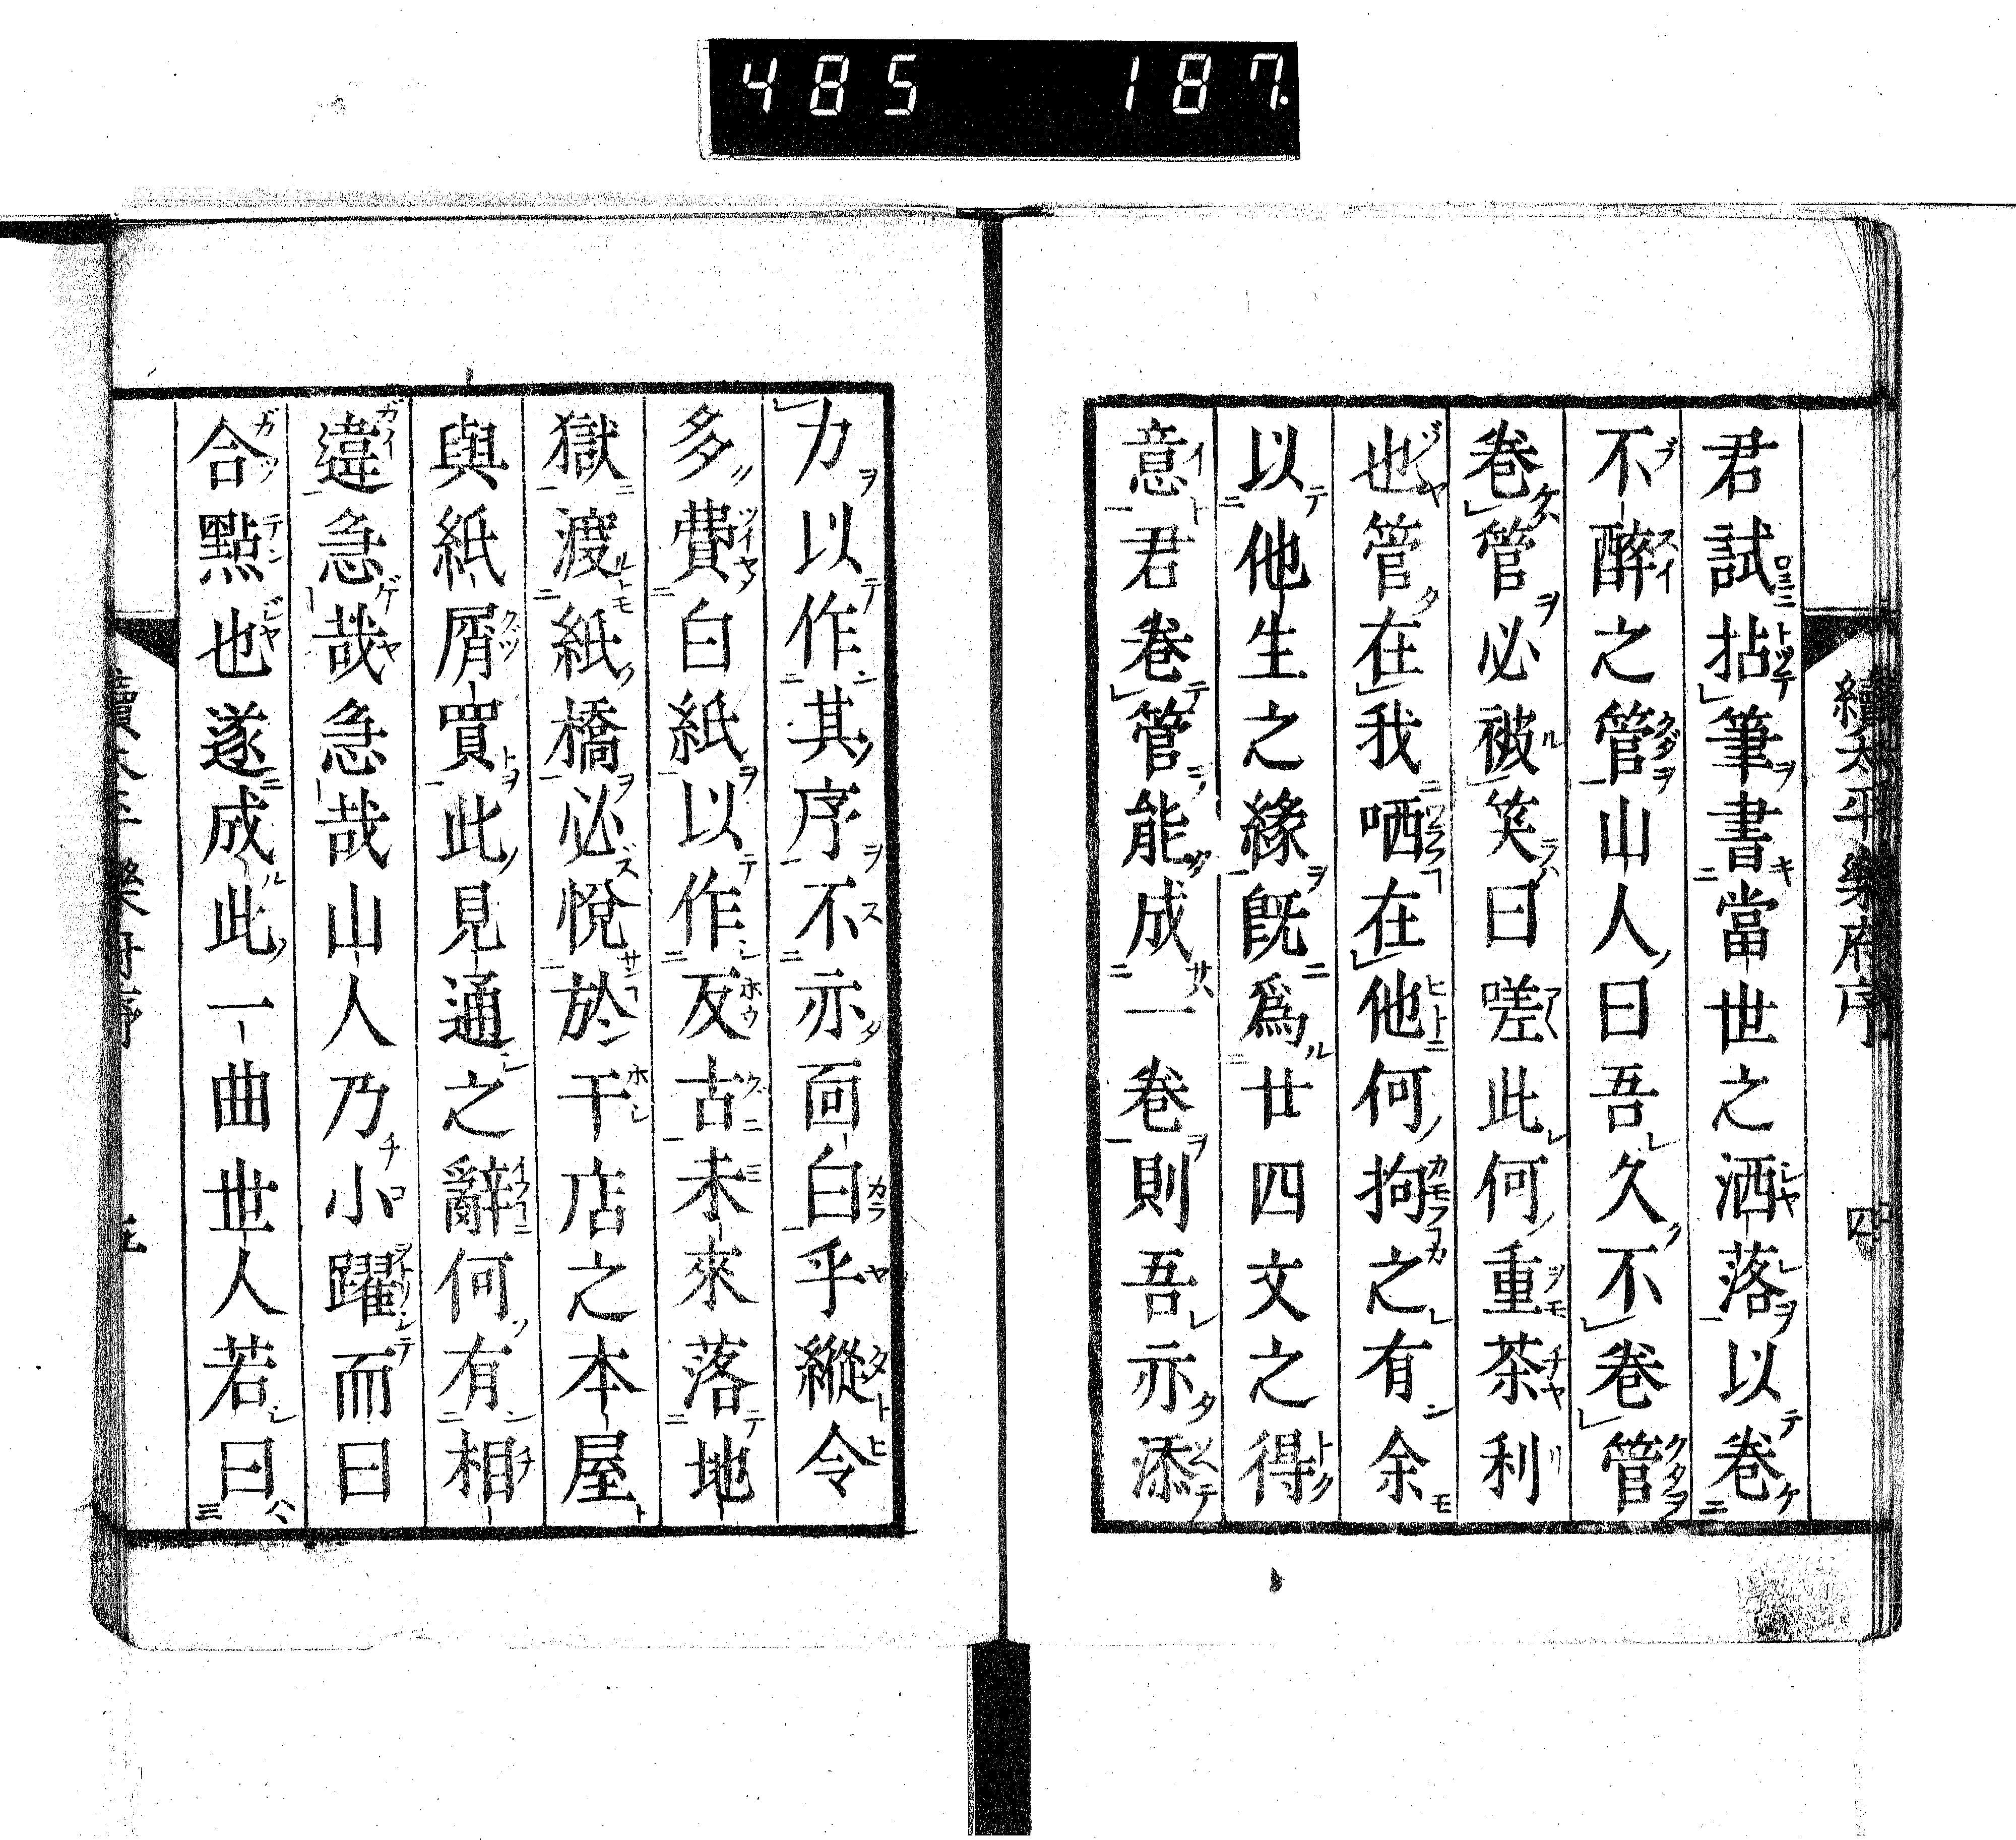 485 187.
續太平樂府序 四
君試拈筆書當世之洒落以巻
不醉之管山人曰吾久不巻管
巻管必被笑曰嗟此何重茶利
也管在我哂在他何拘之有余
以他生之緣既爲廿四文之得
意君巻管能成一巻則吾亦添
力以作其序不亦面白乎縱令
多費白紙以作反古未來落地
獄渡紙橋必悅於干店之本屋
與紙屑買此見通之辭何有相
違急哉急哉山人乃小躍而曰
合點也遂成此一曲世人若曰